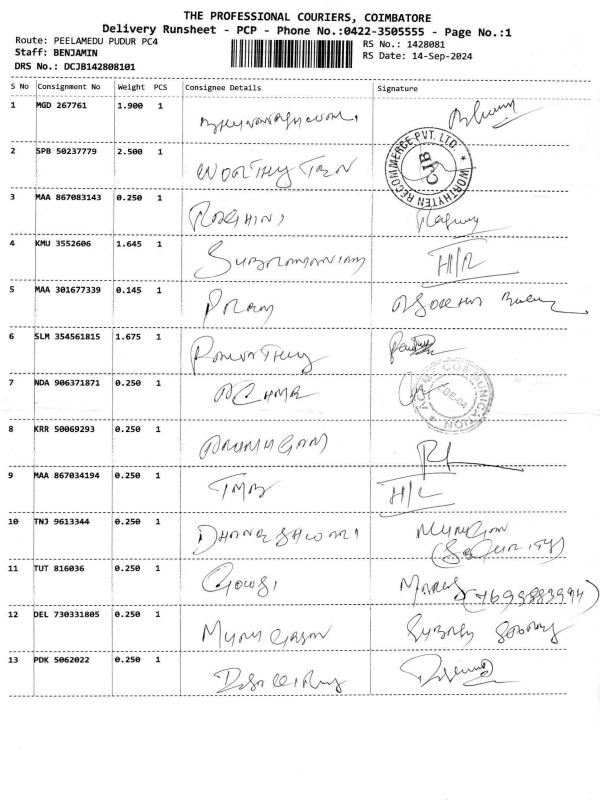 THE PROFESSIONAL COURIERS, COIMBATORE
Delivery Runsheet - PCP - Phone No.:0422-3505555 - Page No.:1
Route: PEELAMEDU PUDUR PC4
RS No.: 1428081
Staff: BENJAMIN
RS Date: 14-Sep-2024
DRS No.: DCJB142808101
S No Consignment No Weight PCS Consignee Details Signature
1 MGD 267761 1.900 1
2 SPB 50237779 2.500 1 WORTHYTEN
WORTHYTEN RECOMMERCE PVT. LTD. * CJB
3 MAA 867083143 0.250 1 ROSHINI
4 KMU 3552606 1.645 1 SUBRAMANIAM H/R
5 MAA 301677339 0.145 1
6 SLM 354561815 1.675 1
7 NDA 906371871 0.250 1 ACHME
COMMUNICATION
8 KRR 50069293 0.250 1 ARUMUGAM
9 MAA 867034194 0.250 1 TMB H/L
10 TNJ 9613344 0.250 1 DHANESHWARI MURUGAN
(SECURITY)
11 TUT 816036 0.250 1 GOWSI
12 DEL 730331805 0.250 1 MURUGESAN
13 PDK 5062022 0.250 1